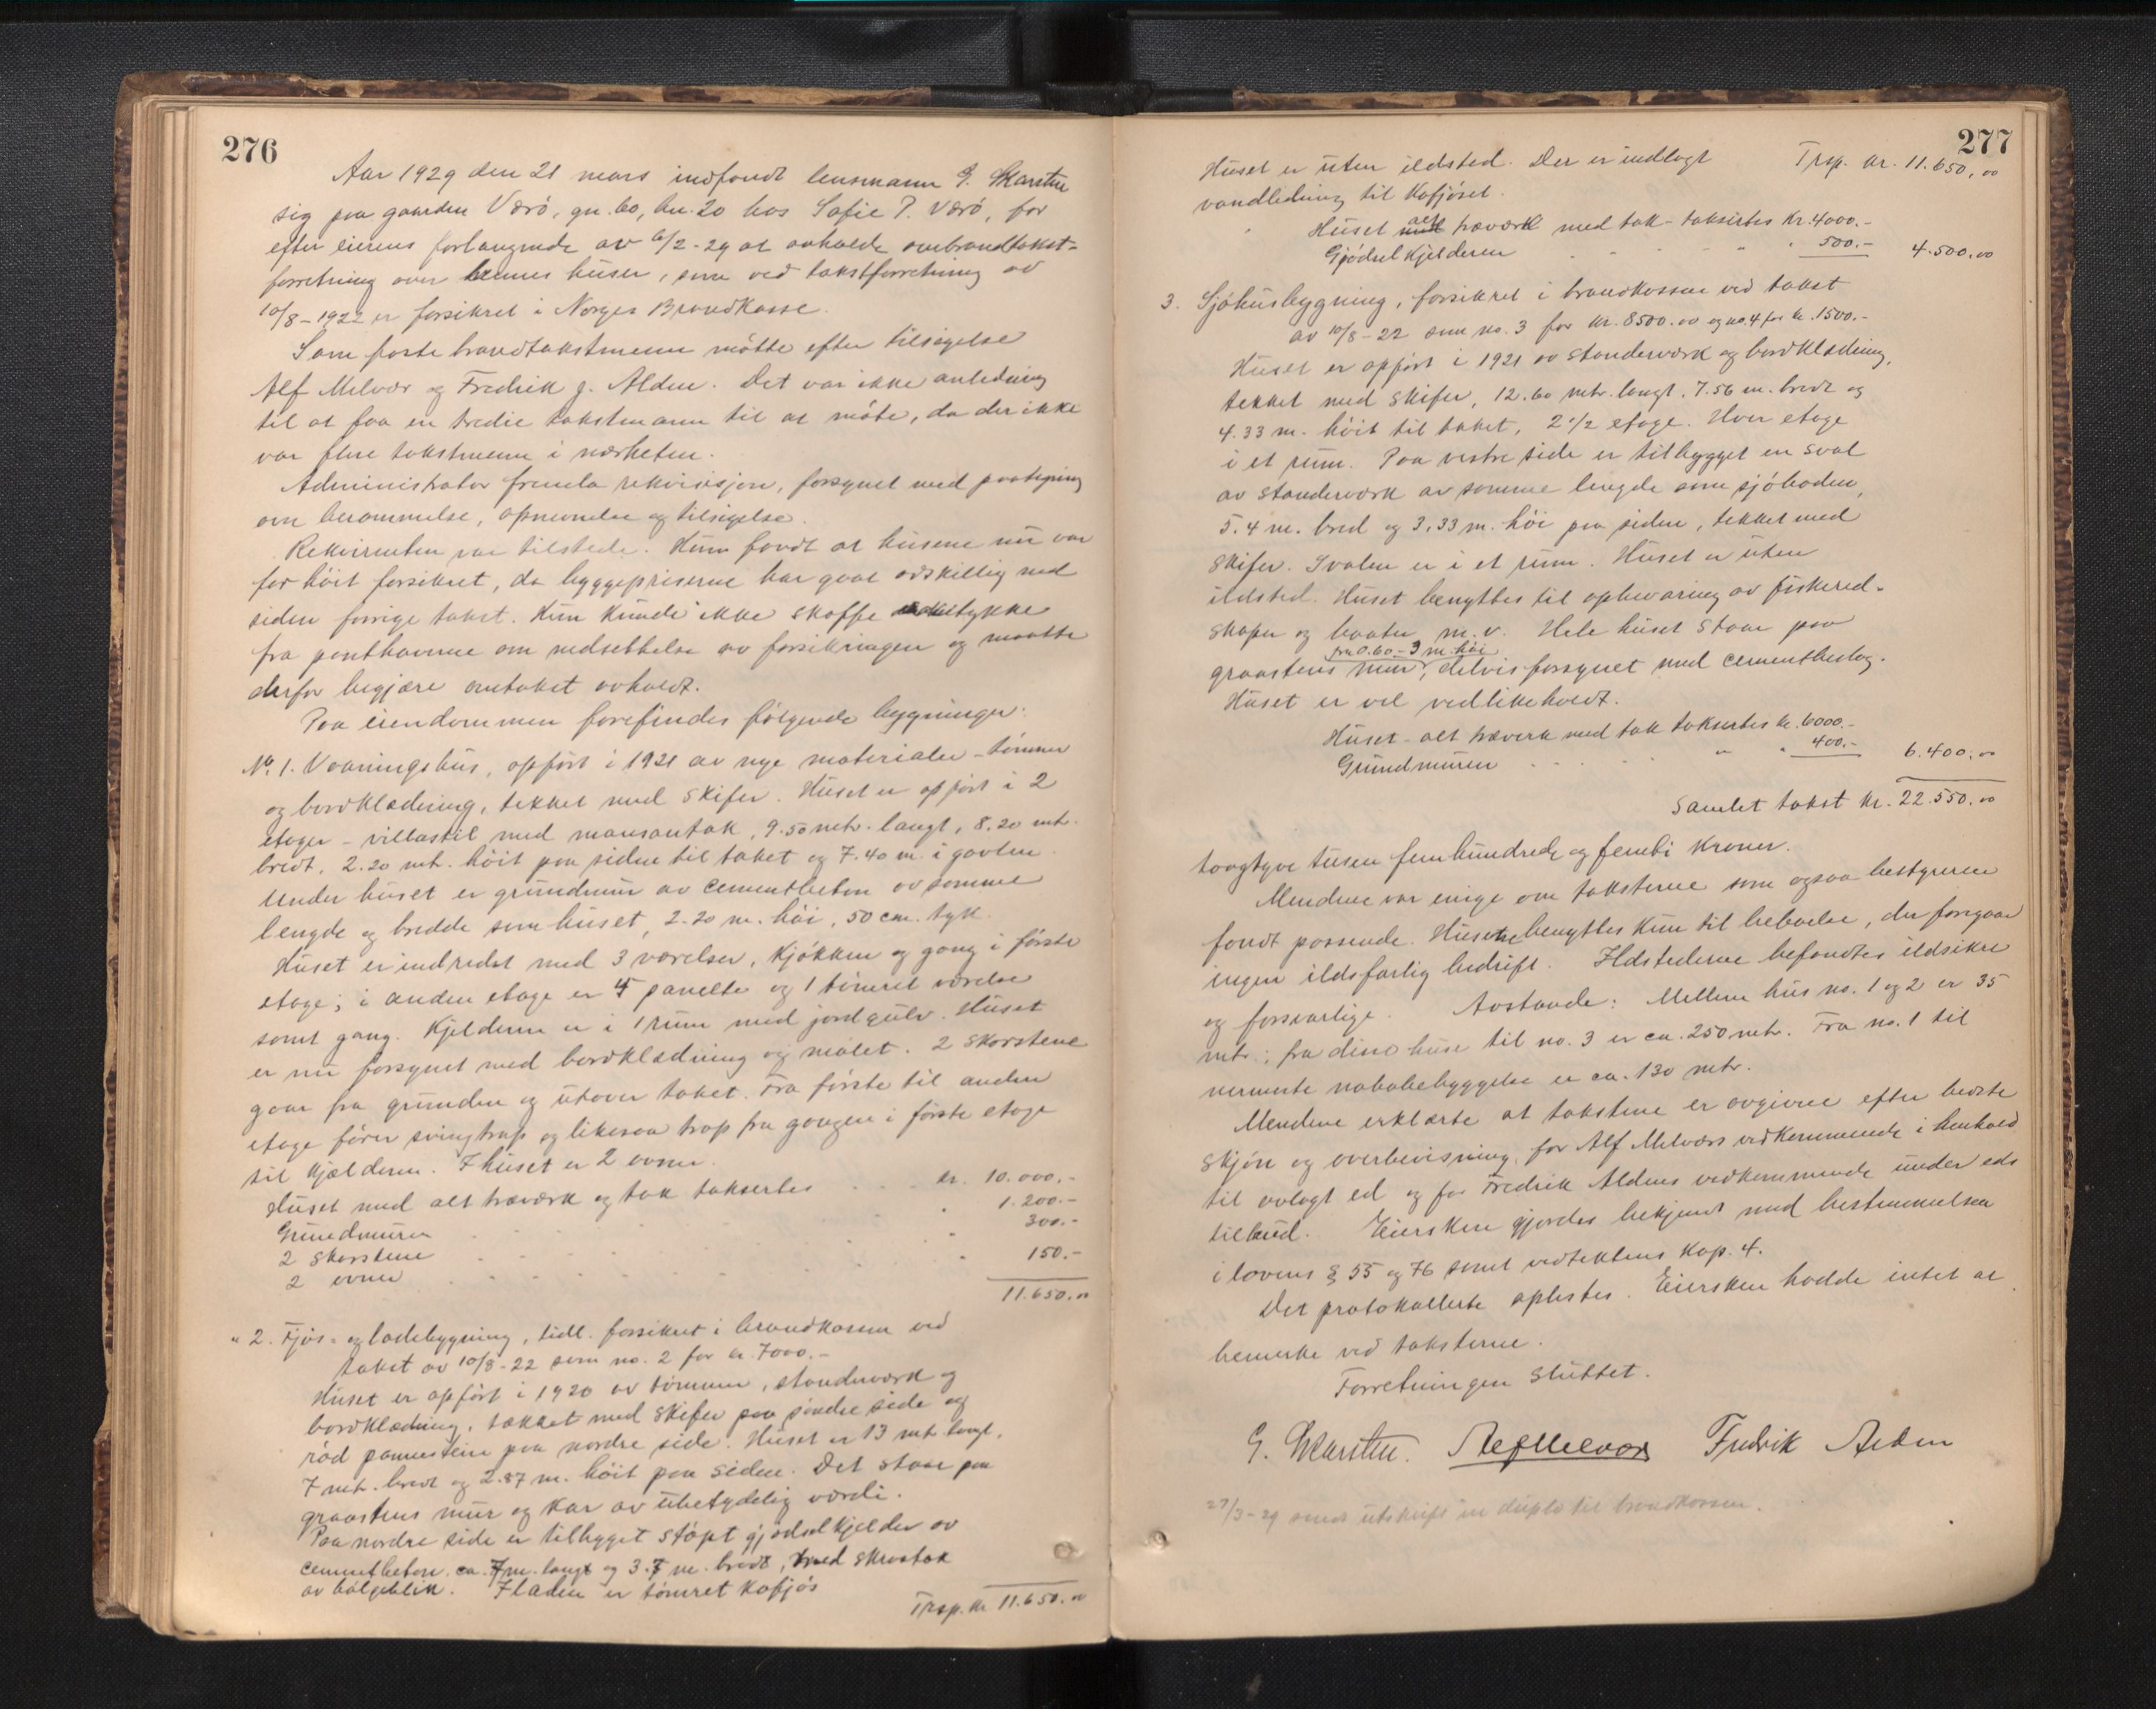 276
Aar 1929 den 21 mars indfandt lensmann G. Skarstein
sig paa gaarden Værö, gn. 60, bn. 20 hos Sofie P. Værö, for
efter eierens forlangende av 6/2-29 at avholde ombrandtakst-
forretning over hennes huser, som ved takstforretning av
10/8-1922 er forsikret i Norges Brandkasse.
Som faste brandtakstmenn mötte efter tilsigelse
Alf Melvær og Fredrik J. Alden. Det var ikke anledning
til at faa en tredie takstmann til at möte, da der ikke
var flere takstmenn i nærheten.
Administrator fremla rekvisisjon, forsynet med paategning
om berammelse, opnevnelse og tilsigelse.
Rekvirenten var tilstede. Hun fandt at husene nu var
for höit forsikret, da byggepriserne har gaat adskillig ned
siden forrige takst. Hun kunde ikke skaffe samtykke
fra panthaverne om nedsettelse av forsikringen og maatte
derfor begjære omtakst avholdt.
Paa eiendommen forefindes fölgende bygninger:
No. 1. Vaaningshus, opfört i 1921 av nye materialer - tömmer
og bordklædning, tekket med skifer. Huset er opfört i 2
etager - villastil med mansantak, 9.50 mtr. langt, 8.20 mtr.
bredt, 2.20 mtr. höit paa sidene til taket og 7.40 m. i gavlen.
Under huset er grundmur av cementbeton av samme
lengde og bredde som huset, 2.20 m. höi, 50 cm. tyk.
Huset er indredet med 3 værelser, kjökken og gang i förste
etage; i anden etage er 4 panelte og 1 tömret værelse
samt gang. Kjelderen er i 1 rum med jordgulv. Huset
er nu forsynet med bordklædning og malet. 2 skorstene
gaar fra grunden og utover taket. Fra förste til anden
etage förer svingtrap og likesaa trap fra gangen i förste etage
til kjælderen. I huset er 2 ovner.
Huset med alt træværk og tak taksertes . . . kr. 10.000.-
Grundmuren . . . " 1.200.-
2 skorstene . . . " 300.-
2 ovner . . . " 150.-
11.650.00
" 2. Fjös- og ladebygning, tidl. forsikret i brandkassen ved
takst av 10/8-22 som no. 2 for kr. 7000.-
Huset er opfört i 1920 av tömmer, standerværk og
bordklædning, tækket med skifer paa söndre side og
röd pannestein paa nordre side. Huset er 13 mtr. langt,
7 mtr. bredt og 2.87 m. höit paa sidene. Det staar paa
graastens mur og kar av ubetydelig værdi.
Paa nordre side er tilbygget stöpt gjödselkjelder av
cementbeton ca. 7 m. langt og 3.7 m. bredt, med skraatak
av bölgeblik. I laden er tömret kafjös
Trsp. kr. 11.650.00
277
Huset er uten ildsted. Der er indlagt Trsp. kr. 11.650,00
vandledning til kafjöset.
Huset alt træværk med tak takseres kr. 4000.-
Gjödselkjelderen . . . " " 500.- 4.500.00
3. Sjöhusbygning, forsikret i brandkassen ved takst
av 10/8-22 som no. 3 for kr. 8500.00 og no. 4 for kr. 1500.-
Huset er opfört i 1921 av standerværk og bordklædning,
tekket med skifer, 12.60 mtr. langt, 7.56 m. bredt og
4.33 m. höit til taket, 2 1/2 etage. Hver etage
i et rum. Paa vestre side er tilbygget en sval
av standerværk av samme lengde som sjöboden,
5.4 m. bred og 3.33 m. höi paa siden, tekket med
skifer. Svalen er i et rum. Huset er uten
ildsted. Huset benyttes til opbevaring av fiskered-
skaper og baater m.v. Hele huset staar paa
fra 0.60 - 3 m. höi
graastens mur, delvis forsynet med cementbeslag.
Huset er vel vedlikeholdt.
Huset - alt træverk med tak takseres kr. 6000.-
Grundmuren . . . " " 400.- 6.400.00
Samlet takst kr. 22.550.00
toogtyve tusen femhundrede og femti kroner.
Mendene var enige om taksterne som ogsaa bestyreren
fandt passende. Husene benyttes kun til bebyelse, der foregaar
ingen ildsfarlig bedrift. Ildstederne befandtes ildsikre
og forsvarlige. Avstande: Mellem hus no. 1 og 2 er 35
mtr.; fra disse huse til no. 3 er ca. 250 mtr. Fra no. 1 til
nermeste nabobebyggelse er ca. 130 mtr.
Mendene erklærte at takstene er avgivne efter bedste
skjön og overbevisning, for Alf Melværs vedkommende i henhold
til avlagt ed og for Fredrik Aldens vedkommende under eds
tilbud. Eiersken gjordes bekjent med bestemmelsen
i lovens § 55 og 76 samt vedtektens kap. 4.
Det protokollerte oplestes. Eiersken hadde intet at
bemerke ved taksterne.
Forretningen sluttet.
G. Skarstein. Alf Melvær Fredrik Alden
27/3-29 sendt utskrift in duplo til brandkassen.